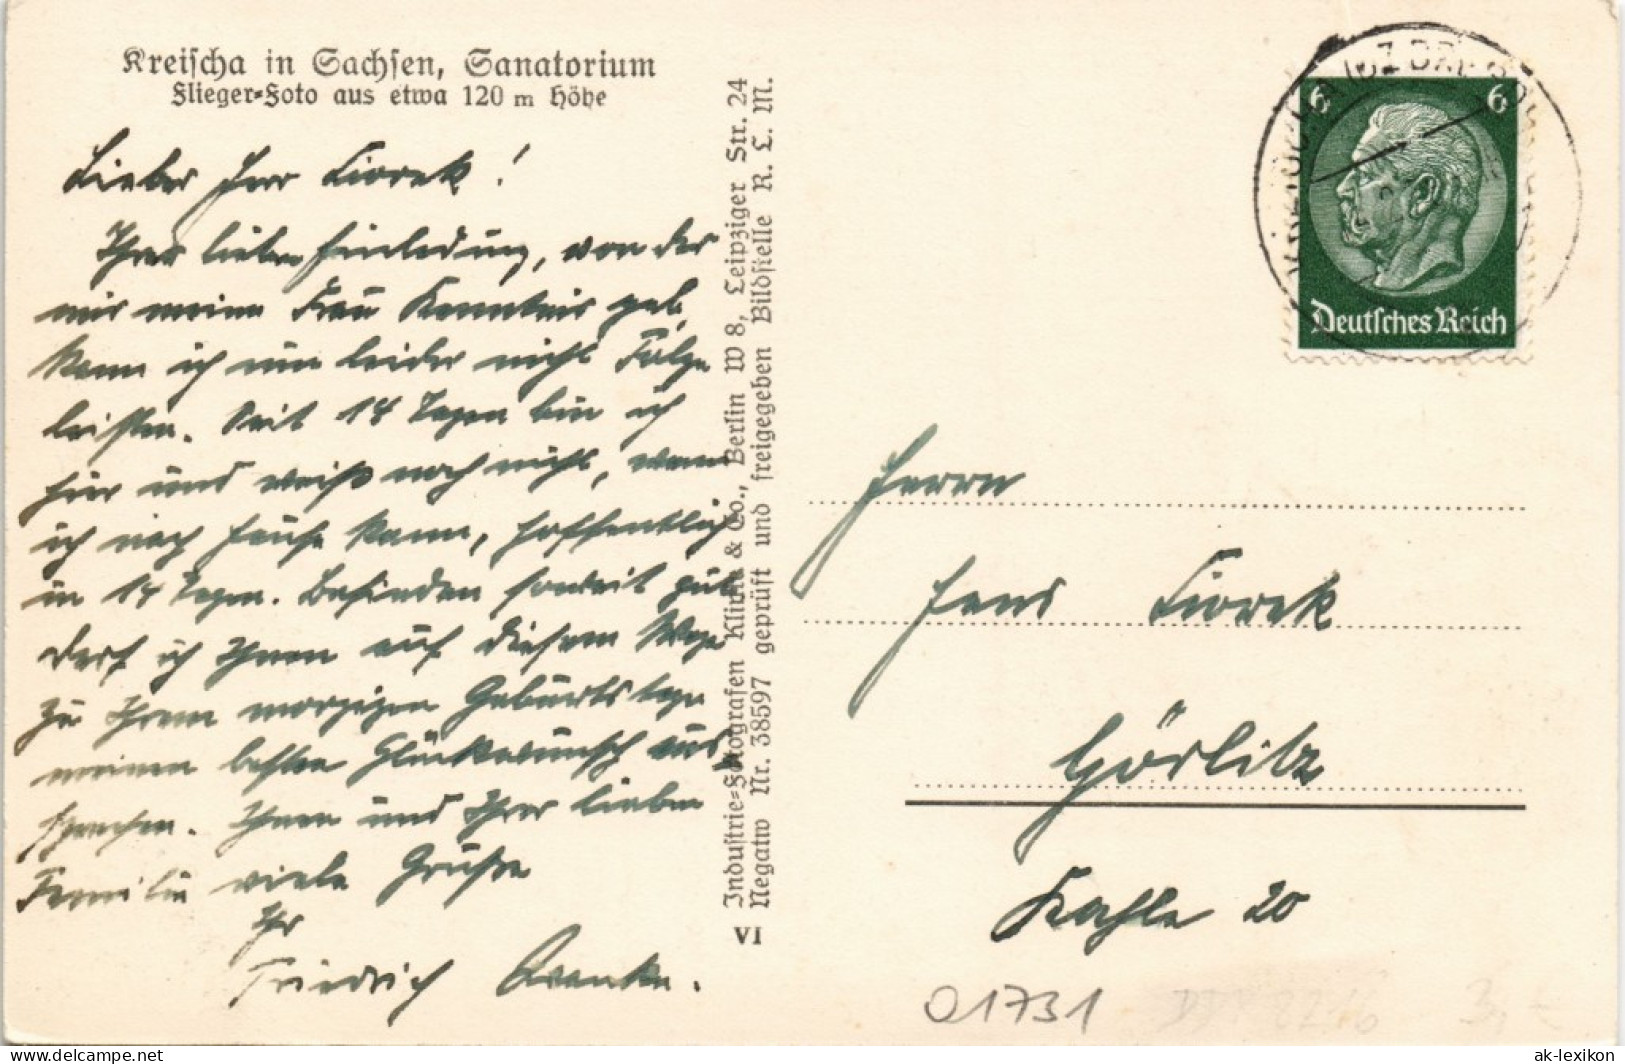 Kreischa in Sachsen, Sanatorium
Flieger=Foto aus etwa 120 m Höhe
Lieber Herr Fiorek!
Ihrer lieben Einladung, von der
mir meine Frau Kenntnis gab,
kann ich nun leider nicht Folge
leisten. Seit 14 Tagen bin ich
hier und weiß noch nicht, wann
ich nach Hause kann, hoffentlich
in 14 Tagen. Befinden soweit gut.
Darf ich Ihnen auf diesem Wege
zu Ihrem morgigen Geburtstage
meinen besten Glückwunsch aus
sprechen. Ihnen und Ihrer lieben
Familie viele Grüße
Ihr
Friedrich
Industrie=Fotografen Klinke & Co., Berlin W 8, Leipziger Str. 24
Negativ Nr. 38597 geprüft und freigegeben Bildstelle R. L. M.
VI
6 6
Deutsches Reich
Herrn
Hans Fiorek
Görlitz
Kahle 20
01731
ak-lexikon